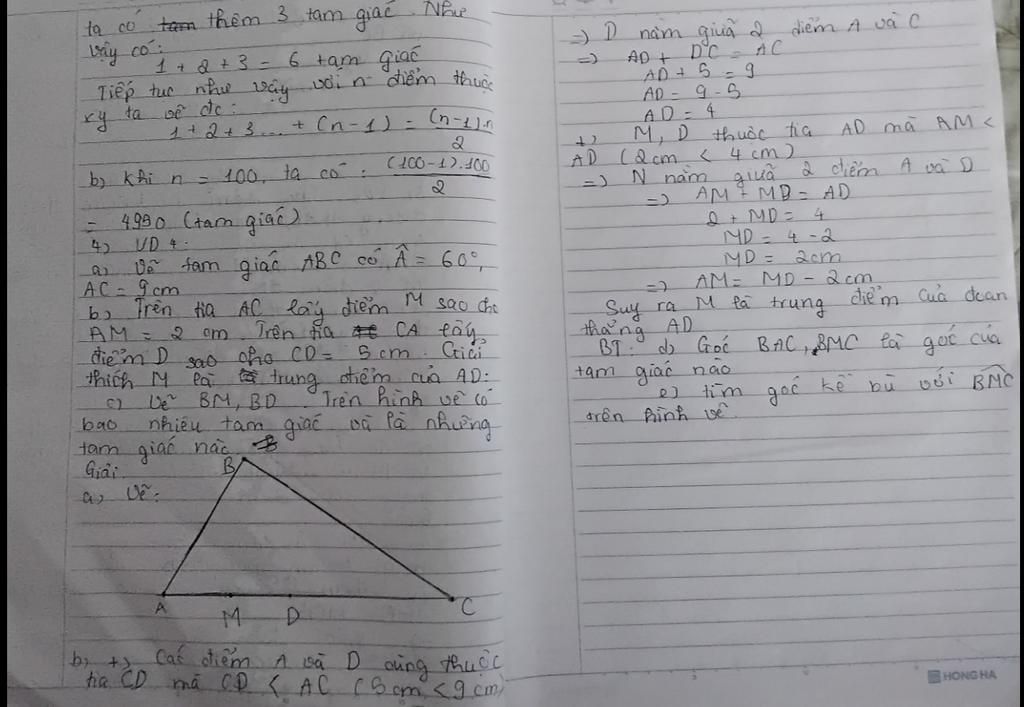 ta có thêm 3 tam giác. Như
vậy có:
1 + 2 + 3 = 6 tam giác
Tiếp tục như vậy với n điểm thuộc
xy ta vẽ đc:
1 + 2 + 3 ... + (n - 1) = (n-1).n / 2
b, Khi n = 100, ta có : (100-1).100 / 2
= 4990 (tam giác)
4, VD 4:
a, Vẽ tam giác ABC có Â = 60°,
AC = 9cm
b, Trên tia AC lấy điểm M sao cho
AM = 2 cm. Trên tia CA lấy
điểm D sao cho CD = 5cm. Giải
thích M là trung điểm của AD:
c, Vẽ BM, BD. Trên hình vẽ có
bao nhiêu tam giác và là những
tam giác nào
Giải
B
a, Vẽ:
A M D C
b, +, Các điểm A và D cùng thuộc
tia CD mà CD < AC (5cm < 9cm)
=> D nằm giữa 2 điểm A và C
=> AD + DC = AC
AD + 5 = 9
AD = 9 - 5
AD = 4
+, M, D thuộc tia AD mà AM <
AD (2cm < 4cm)
=> N nằm giữa 2 điểm A và D
=> AM + MD = AD
2 + MD = 4
MD = 4 - 2
MD = 2cm
=> AM = MD - 2cm
Suy ra M là trung điểm của đoạn
thẳng AD
BT: d, Góc BAC, BMC là góc của
tam giác nào
e, tìm góc kề bù với BMC
trên hình vẽ.
HONG HA